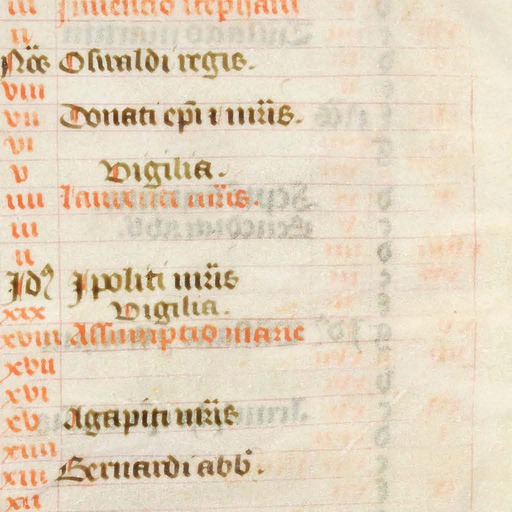 iii Inuencio stephani
ii
Nōs Oswaldi regis.
viii
vii Donati ep̄i ⁊ mr̄is.
vi
v Vigilia.
iiii Laurencii mr̄is.
iii
ii
Jdꝰ Jpoliti mr̄is
xix Vigilia.
xviii Assumptio marie
xvii
xvi
xv Agapiti mr̄is
xiiii
xiii Bernardi abb̄.
xii